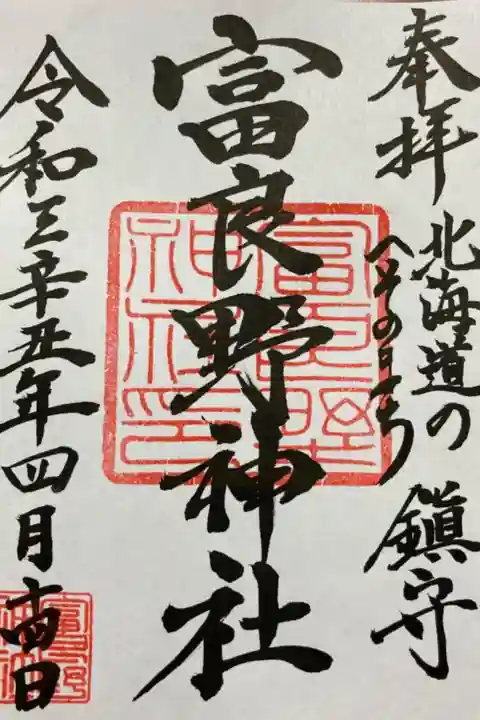 奉拝
北海道の
へそのまち
鎭守
富良野神社
富良野
神社印
令和三辛丑年四月十四日